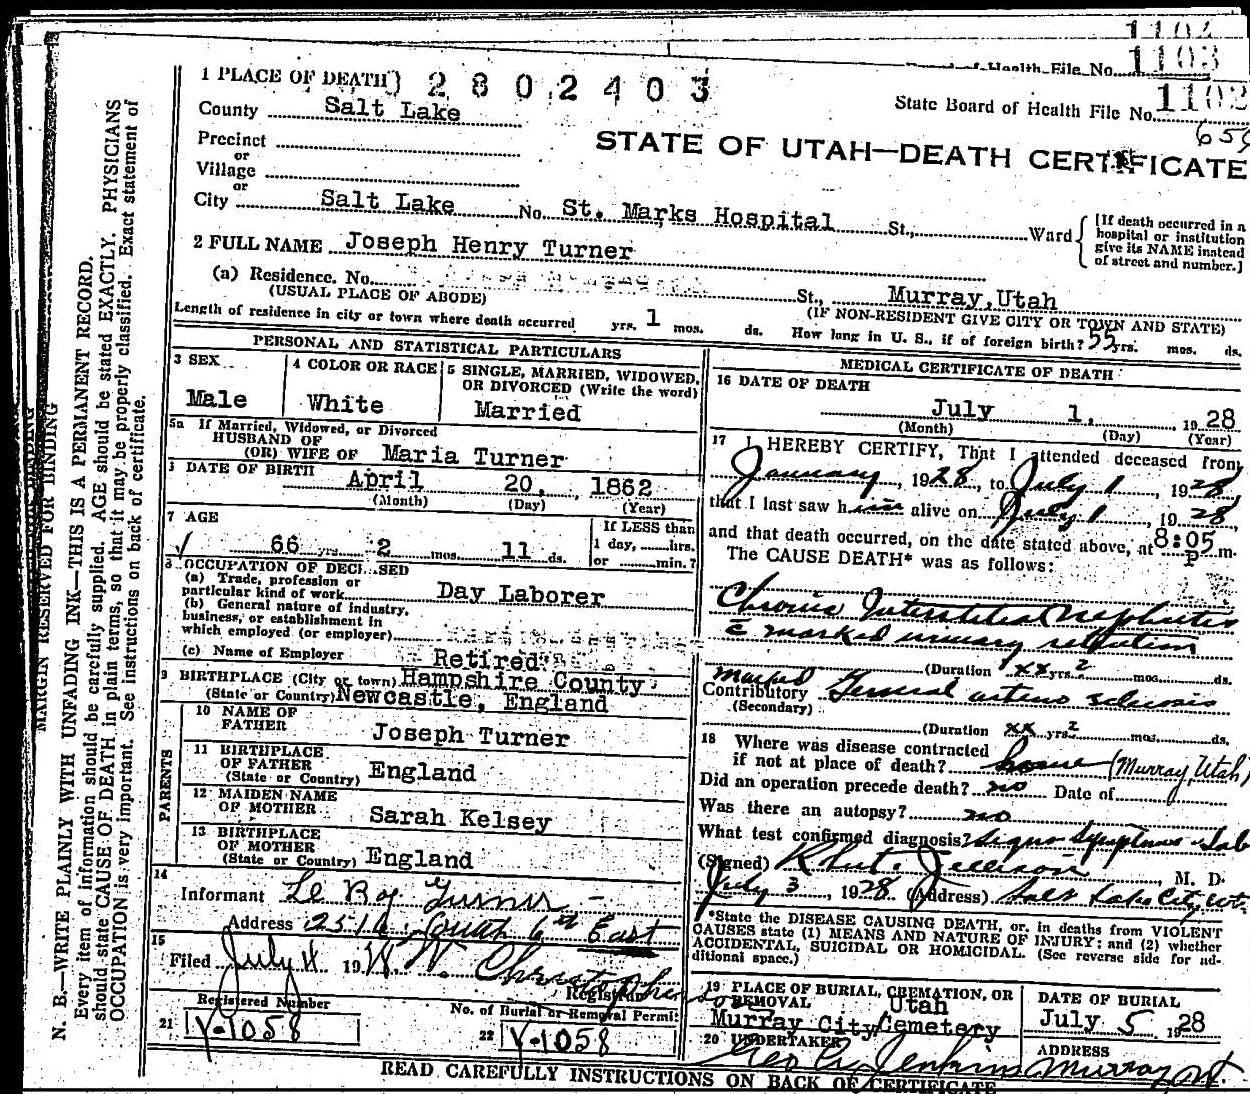 1104
1103
Board of Health File No.
1 PLACE OF DEATH) 2802403
State Board of Health File No. 1102
County Salt Lake
STATE OF UTAH—DEATH CERTIFICATE
Precinct
or
Village
or
City Salt Lake No. St. Marks Hospital St., Ward
[If death occurred in a hospital or institution give its NAME instead of street and number.]
2 FULL NAME Joseph Henry Turner
(a) Residence. No. St., Murray, Utah
(USUAL PLACE OF ABODE) (IF NON-RESIDENT GIVE CITY OR TOWN AND STATE)
Length of residence in city or town where death occurred yrs. 1 mos. ds. How long in U. S., if of foreign birth? 55 yrs. mos. ds.
PERSONAL AND STATISTICAL PARTICULARS
3 SEX
Male
4 COLOR OR RACE
White
5 SINGLE, MARRIED, WIDOWED,
OR DIVORCED (Write the word)
Married
5a If Married, Widowed, or Divorced
HUSBAND OF
(OR) WIFE OF Maria Turner
DATE OF BIRTH April 20, 1862
(Month) (Day) (Year)
7 AGE
66 yrs. 2 mos. 11 ds.
If LESS than
1 day, hrs.
or min.?
OCCUPATION OF DECEASED
(a) Trade, profession or
particular kind of work Day Laborer
(b) General nature of industry,
business, or establishment in
which employed (or employer)
(c) Name of Employer Retired
9 BIRTHPLACE (City or town) Hampshire County
(State or Country) Newcastle, England
PARENTS
10 NAME OF
FATHER Joseph Turner
11 BIRTHPLACE
OF FATHER
(State or Country) England
12 MAIDEN NAME
OF MOTHER Sarah Kelsey
13 BIRTHPLACE
OF MOTHER
(State or Country) England
14
Informant Le Roy Turner
Address 2516 South 6th East
15
Filed July 4 1928 W. Christopherson
Registrar
Registered Number
21 Y-1058
No. of Burial or Removal Permit
22 Y-1058
MEDICAL CERTIFICATE OF DEATH
16 DATE OF DEATH
July 1, 1928
(Month) (Day) (Year)
17 I HEREBY CERTIFY, That I attended deceased from
January, 1928, to July 1, 1928,
that I last saw him alive on July 1, 1928,
and that death occurred, on the date stated above, at 8:05 P m.
The CAUSE DEATH* was as follows:
Chronic Interstitial Nephritis
c̄ marked urinary retention
(Duration xx yrs. 2 mos. ds.
marked
Contributory General arterio sclerosis
(Secondary)
(Duration xx yrs. 2 mos. ds.
18 Where was disease contracted
if not at place of death? home (Murray, Utah)
Did an operation precede death? no Date of
Was there an autopsy? no
What test confirmed diagnosis? Signs Symptoms Lab
(Signed) M. D.
July 3, 1928 (Address) Salt Lake City, Ut.
*State the DISEASE CAUSING DEATH, or, in deaths from VIOLENT
CAUSES state (1) MEANS AND NATURE OF INJURY; and (2) whether
ACCIDENTAL, SUICIDAL OR HOMICIDAL. (See reverse side for ad-
ditional space.)
19 PLACE OF BURIAL, CREMATION, OR
REMOVAL Utah
Murray City Cemetery
DATE OF BURIAL
July 5 1928
20 UNDERTAKER Jenkins
ADDRESS
Murray Ut.
READ CAREFULLY INSTRUCTIONS ON BACK OF CERTIFICATE
MARGIN RESERVED FOR BINDING
N. B.—WRITE PLAINLY WITH UNFADING INK—THIS IS A PERMANENT RECORD.
Every item of information should be carefully supplied. AGE should be stated EXACTLY. PHYSICIANS
should state CAUSE OF DEATH in plain terms, so that it may be properly classified. Exact statement of
OCCUPATION is very important. See instructions on back of certificate.